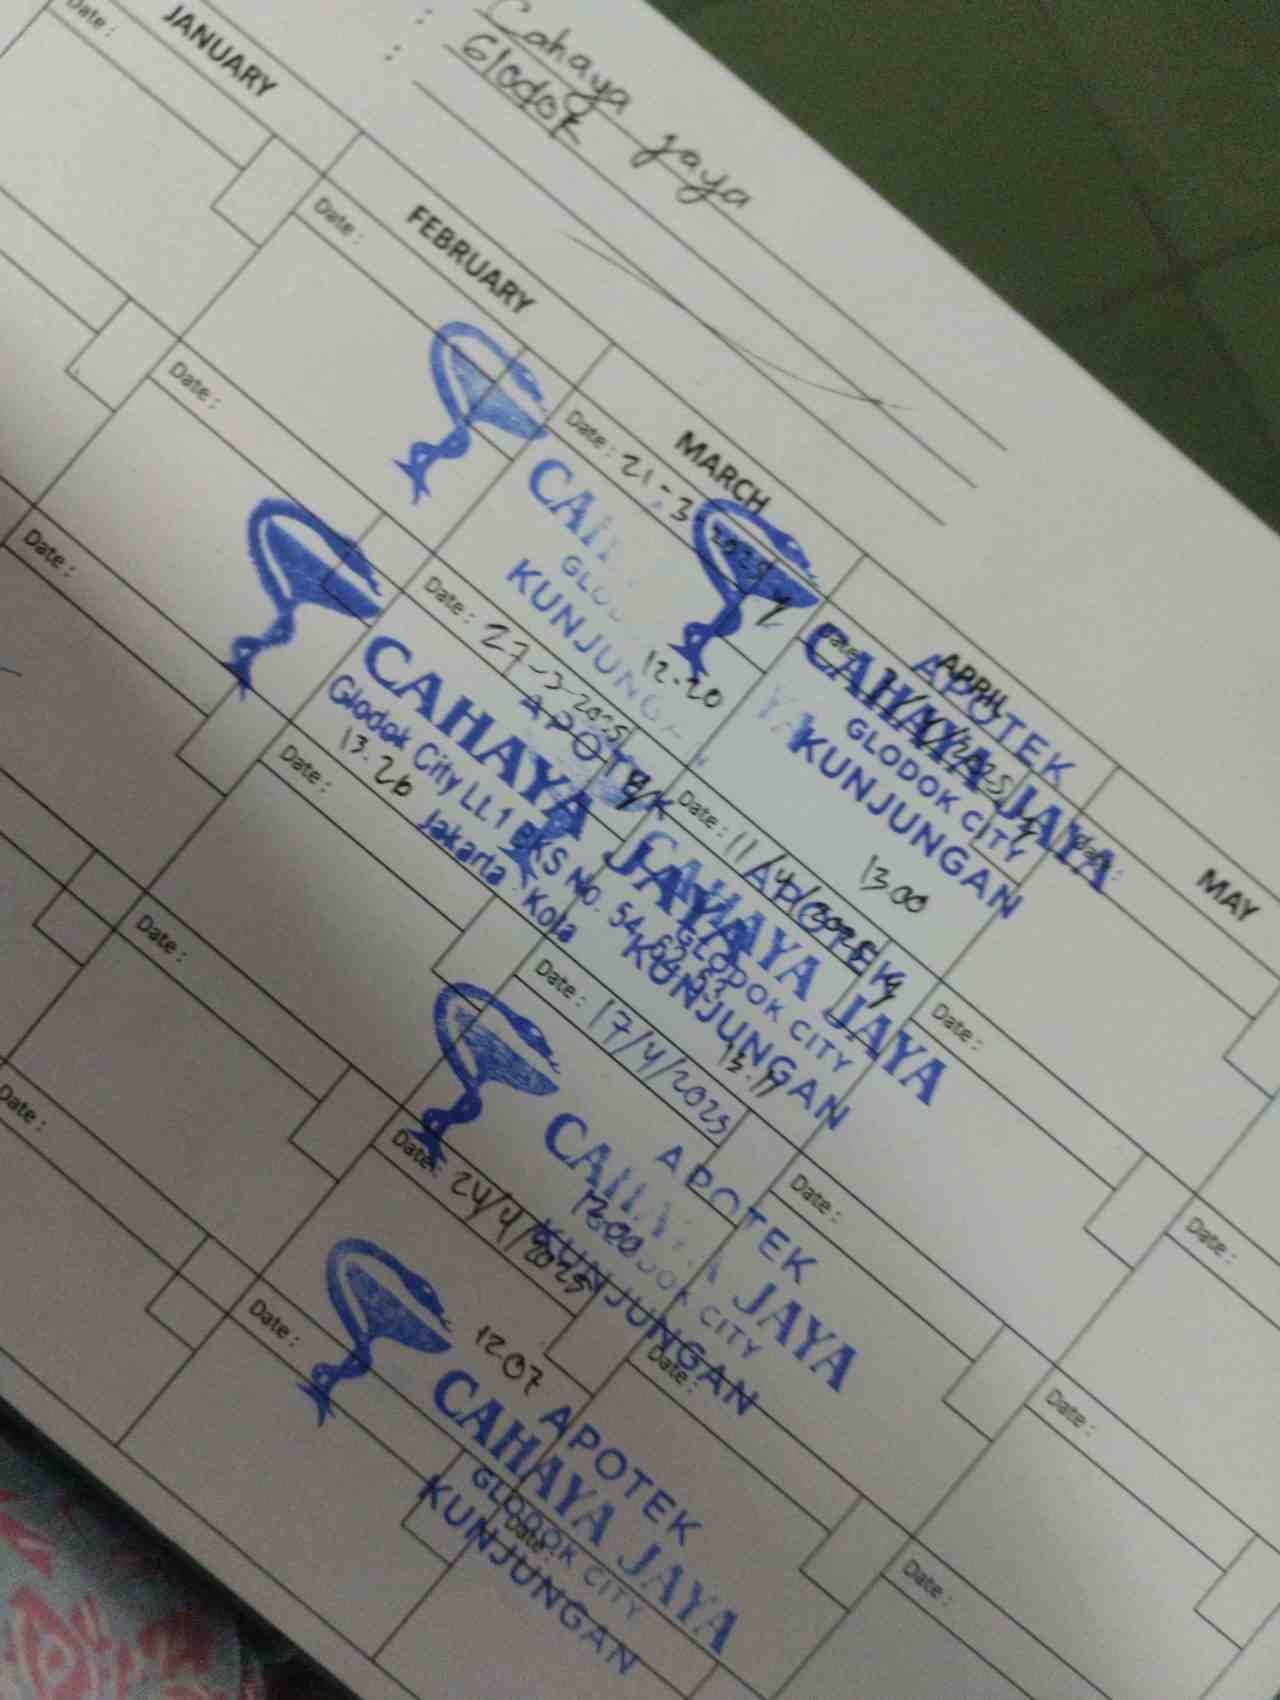 Cahaya Jaya
Glodok
JANUARY
FEBRUARY
MARCH
APRIL
MAY
Date :
Date :
Date : 21-3-2025
12.20
GLO
KUNJUNGA
Date : 1/4/2025
APOTEK
CAHAYA JAYA
GLODOK CITY
KUNJUNGAN
13.00
Date :
Date :
Date : 27-3-2025
13.26
APOTEK
CAHAYA JAYA
Glodok City Lt. 1 BKS No. 54, 62, 53
Jakarta - Kota
Date : 11/4/2025
APOTEK
CAHAYA JAYA
GLODOK CITY
KUNJUNGAN
13.17
Date :
Date :
Date :
Date : 17/4/2025
APOTEK
CAHAYA JAYA
GLODOK CITY
KUNJUNGAN
Date :
Date :
Date :
Date : 24/4/2025
12.07
APOTEK
CAHAYA JAYA
GLODOK CITY
KUNJUNGAN
Date :
Date :
Date :
Date :
Date :
Date :